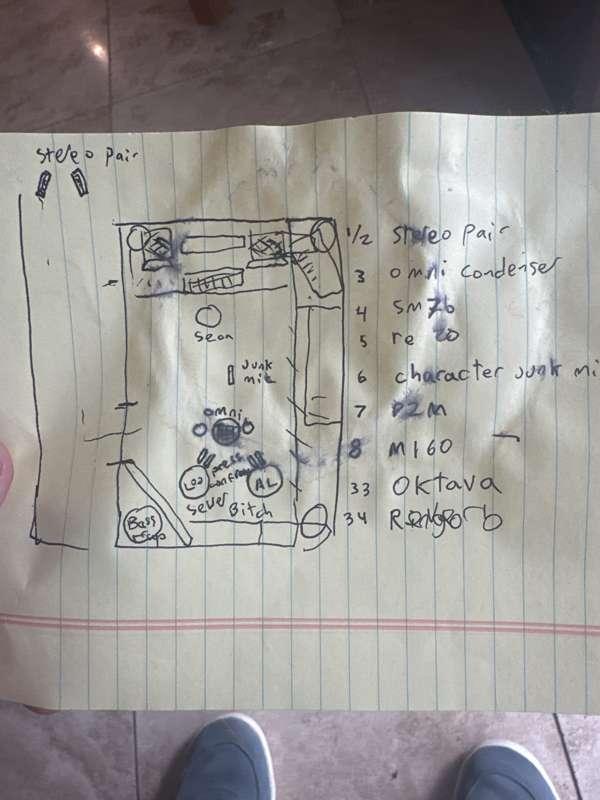 stereo pair
1/2 stereo pair
3 omni condenser
4 sm7b
5 re 20
6 character junk mi
7 PZM
8 M160
33 Oktava
34
Sean
junk
mic
omni
press
Lou
AL
Sever Bitch
Bass